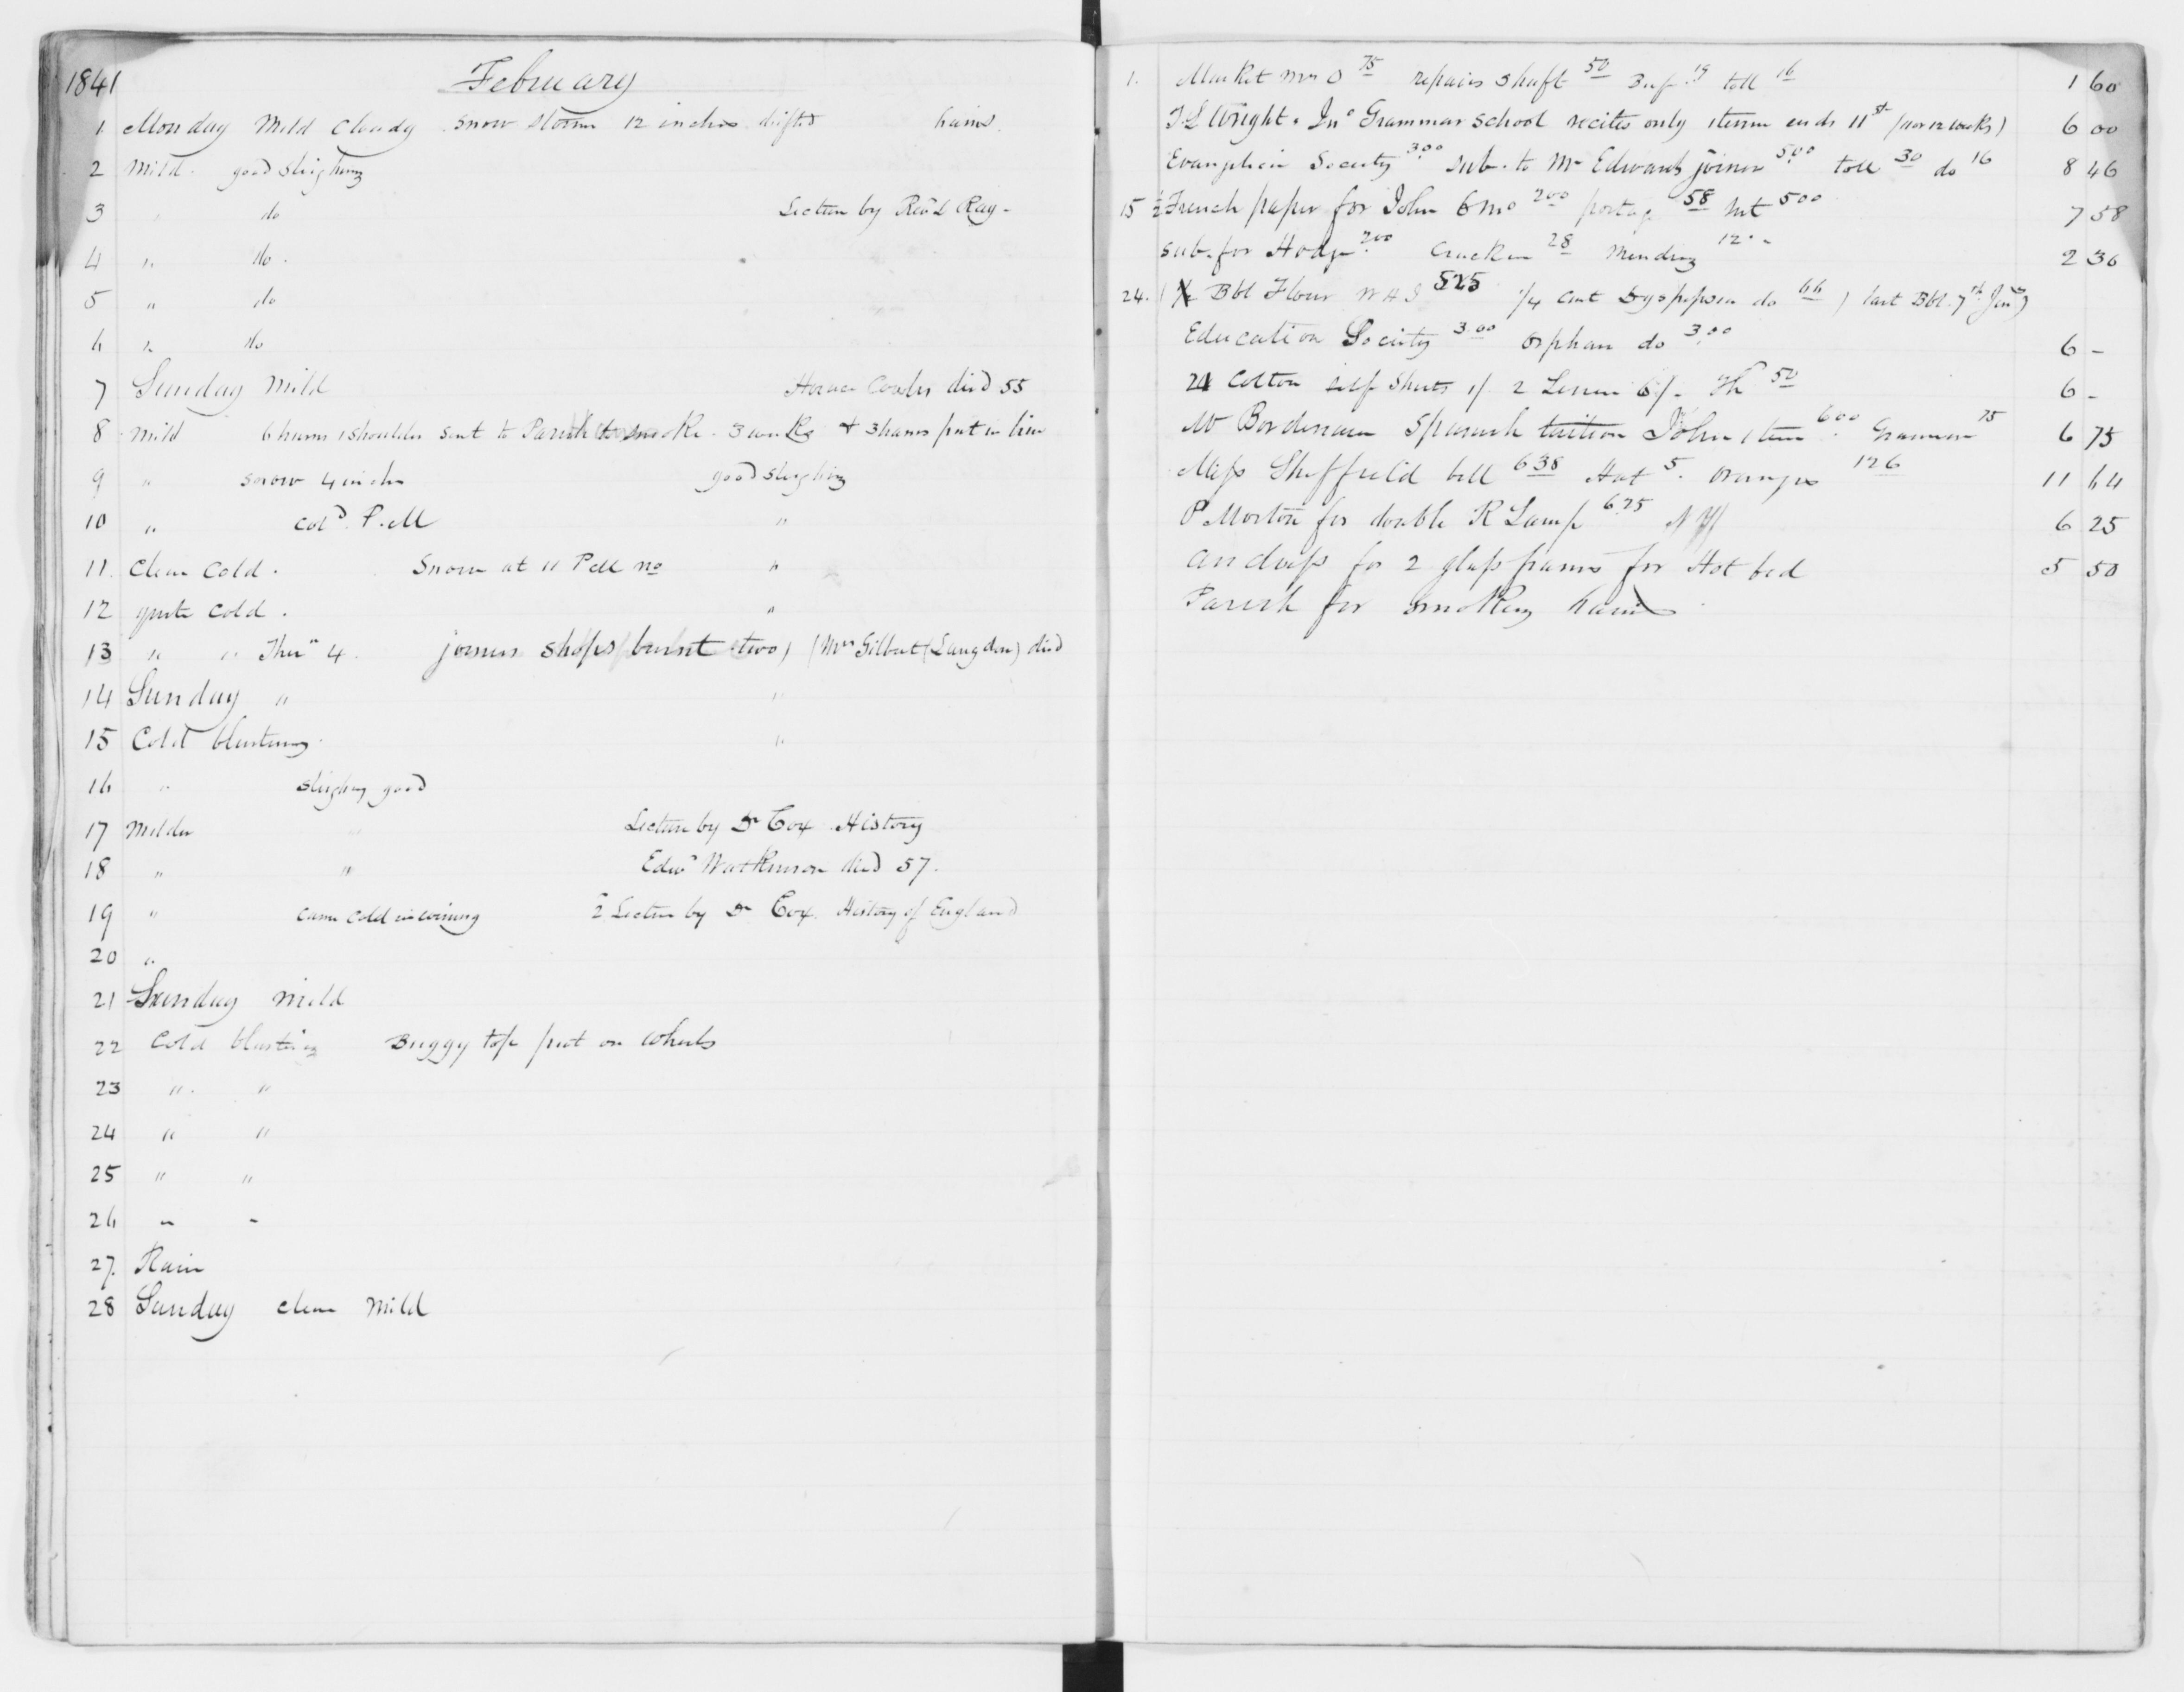 1841 February
1 Monday Mild Cloudy Snow Storm 12 inches drifted hams
2 Mild. good Sleighing
3 " do Lecture by Revd Ray-
4 " do.
5 " do
6 " do
7 Sunday Mild Horace Cowles died 55
8 Mild 6 hams 1 shoulder sent to Parish to smoke. 3 weeks + 3 hams put in
9 " snow 4 inches good sleighing
10 " cold P.M "
11. Clear Cold. Snow at 11 PM no "
12 quite cold. "
13 " " Ther 4. joiners shops burnt (two) (Mrs Gilbert (Langdon) died
14 Sunday " "
15 Cold blustering "
16 " sleighing good
17 Milder " Lecture by Dr Cox History
18 " " Edwd Watkinson died 57.
19 " came cold in evening 2 Lecture by Dr Cox. History of England
20 "
21 Sunday mild
22 Cold blustering Buggy top put on wheels
23 " "
24 " "
25 " "
26 " "
27. Rain
28 Sunday clear Mild
1. Market Mrs O 75 repairs shaft 50 19 toll 16 1 60
Wright. Jno Grammar School recites only 1 term ends 11st 6 00
Society 3.00 Sub. to Mr Edwards joiner 5.00 toll 30 do 16 8 46
15 French paper for John 6 mo 200 postage 58 500 7 58
sub. for 2.00 Cracker 28 Mending 12. 2 36
24. Bbl Flour 525 1/4 Cwt Dyspepsia do 66 ) last Bbl. 7th Jany)
Education Society 3.00 Orphan do 3.00 6 -
Cotton self Shirts 1/ 2 Linen 6/- 50 6 -
Mr Spanish tuition John 1 term 600 Grammar 75 6 75
Miss Sheffield bill 638 Hat 5. Oranges 126 11 64
P Morton for double R Lamp 6.25 NY 6 25
Andrass for 2 glass frames for Hot bed 5 50
Parish for smoking hams